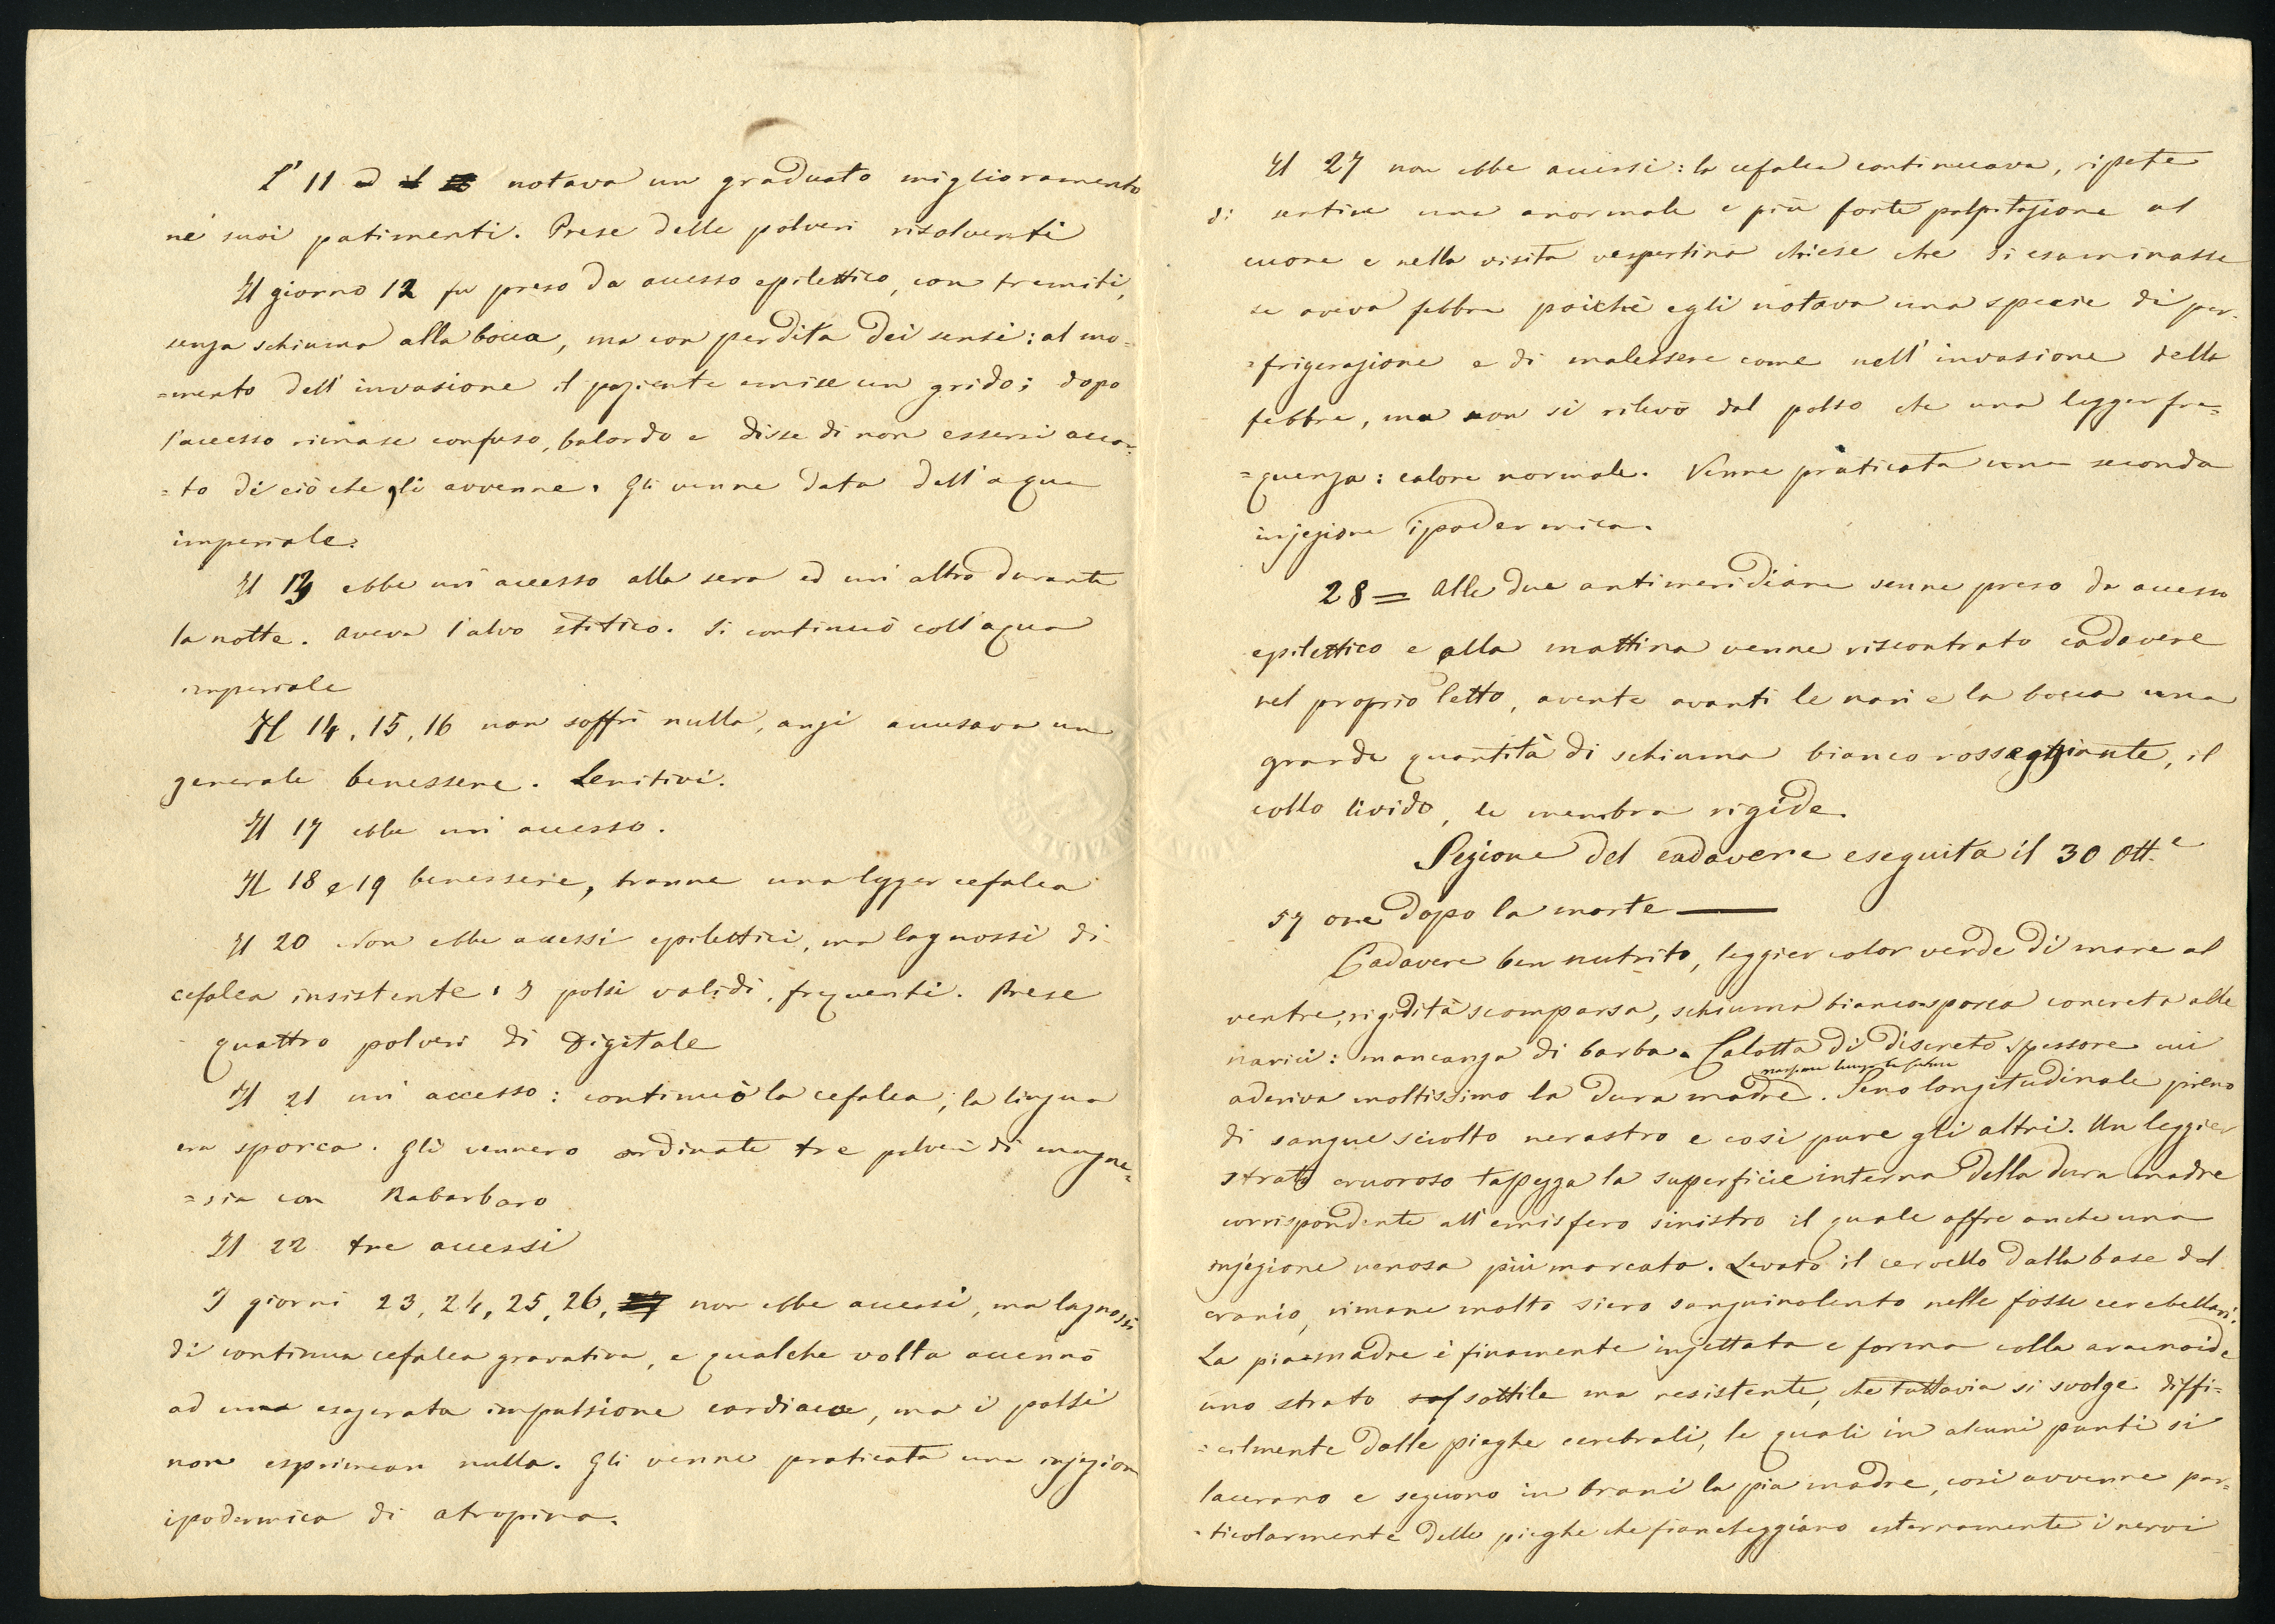 L' 11 notava un graduato miglioramento
ne' suoi patimenti. Prese delle polveri risolventi
Il giorno 12 fu preso da accesso epilettico, con tremiti,
senza schiuma alla bocca, ma con perdita dei sensi: al mo=
=mento dell' invasione il paziente emise un grido; dopo
l'accesso rimase confuso, balordo e disse di non essersi accor=
=to di ciò che gli avvenne. Gli venne data dell'aqua
imperiale.
Il 13 ebbe un' accesso alla sera ed un' altro durante
la notte. Aveva l'alvo stitico. Si continuò coll'aqua
imperiale
Il 14, 15, 16 non soffrì nulla, anzi accusava un
generale benessere. Lenitivi.
Il 17 ebbe un' accesso.
Il 18 e 19 benessere, tranne una legger cefalea
Il 20 Non ebbe accessi epilettici, ma lagnossi di
cefalea insistente. I polsi validi, frequenti. Prese
quattro polveri di Digitale
Il 21 un' accesso: continuò la cefalea; la lingua
era sporca. Gli vennero ordinate tre polveri di magne=
=sia con Rabarbaro
Il 22 tre accessi
I giorni 23, 24, 25, 26, 27 non ebbe accessi, ma lagnossi
di continua cefalea gravativa, e qualche volta accennò
ad una esagerata impulsione cardiaca, ma i polsi
non esprimean nulla. Gli venne praticata una injezion
ipodermica di atropina.
Il 27 non ebbe accessi: la cefalea continuava, ripete
di sentire una anormale e più forte palpitazione al
cuore e nella visita vespertina chiese che si esaminasse
se aveva febbre poichè egli notava una specie di per=
=frigerazione e di malessere come nell' invasione della
febbre, ma non si rilevò dal polso che una legger fre=
=quenza: calore normale. Venne praticata una seconda
injezione ipodermica.
28 = Alle due antimeridiane venne preso da accesso
epilettico e alla mattina venne riscontrato cadavere
nel proprio letto, avente avanti le nari e la bocca una
grande quantità di schiuma bianco rosseggiante, il
collo livido, le membra rigide.
Sezione del cadavere eseguita il 30 Ott.e
57 ore dopo la morte
Cadavere ben nutrito, leggier color verde di mare al
ventre, rigidità scomparsa, schiuma bianco=sporca concreta alle
narici: mancanza di barba. Calotta di discreto spessore cui
aderiva moltissimo la dura madre. Seno longitudinale pieno
di sangue sciolto nerastro e così pure gli altri. Un leggier
strato cruoroso tappezza la superficie interna della dura madre
corrispondente all' emisfero sinistro il quale offre anche una
injezione venosa più marcata. Levato il cervello dalla base del
cranio, rimane molto siero sanguinolento nelle fosse cerebellari.
La pia=madre è finamente injettata e forma colla aracnoide
uno strato sottile ma resistente, che tuttavia si svolge diffi=
=cilmente dalle pieghe cerebrali, le quali in alcuni punti si
lacerano e seguono in brani la pia madre, così avvenne par=
=ticolarmente delle pieghe che fiancheggiano esternamente i nervi